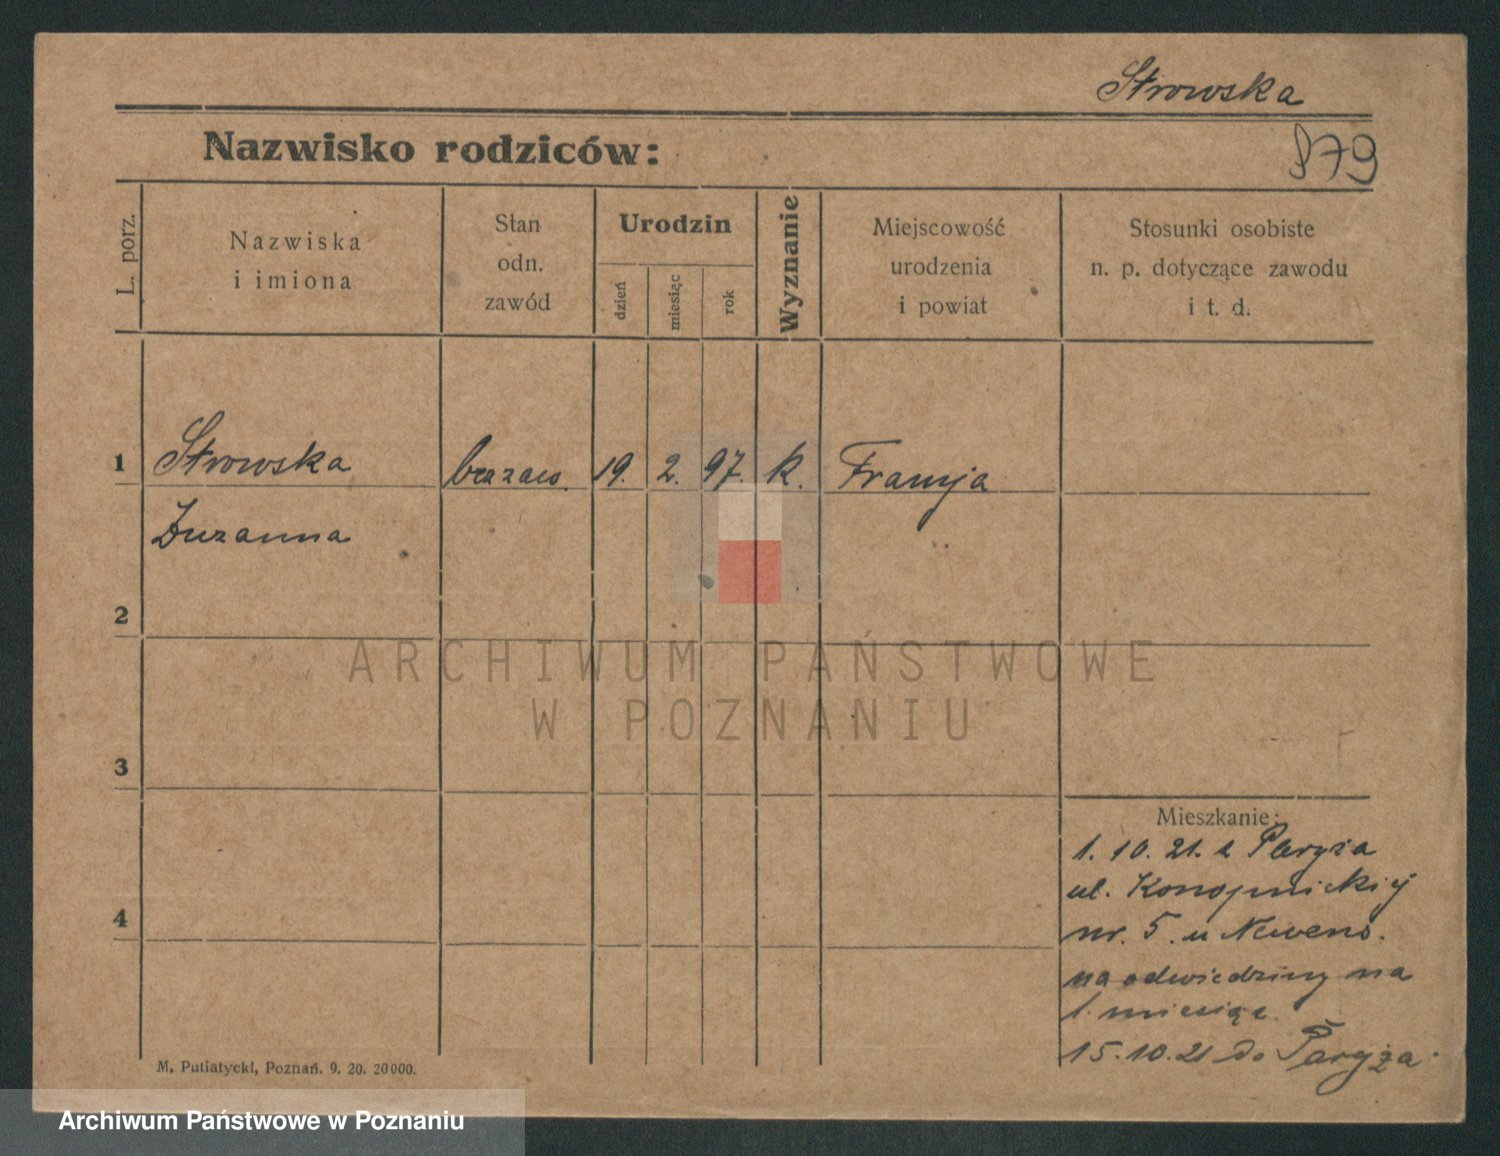 Strowska
879
Nazwisko rodziców:
L. porz.
Nazwiska
i imiona
Stan
odn.
zawód
Urodzin
dzień
miesiąc
rok
Wyznanie
Miejscowość
urodzenia
i powiat
Stosunki osobiste
n. p. dotyczące zawodu
i t. d.
1 Strowska bez zaw. 19. 2. 97. k. Francja
Zuzanna
2
ARCHIWUM PAŃSTWOWE
W POZNANIU
3
Mieszkanie:
1. 10. 21. z Paryża
ul. Konopnickiej
4
nr. 5. u
na odwiedziny na
1. miesiąc.
15.10.21 do Paryża.
M. Putiatycki, Poznań. 9. 20. 20000.
Archiwum Państwowe w Poznaniu